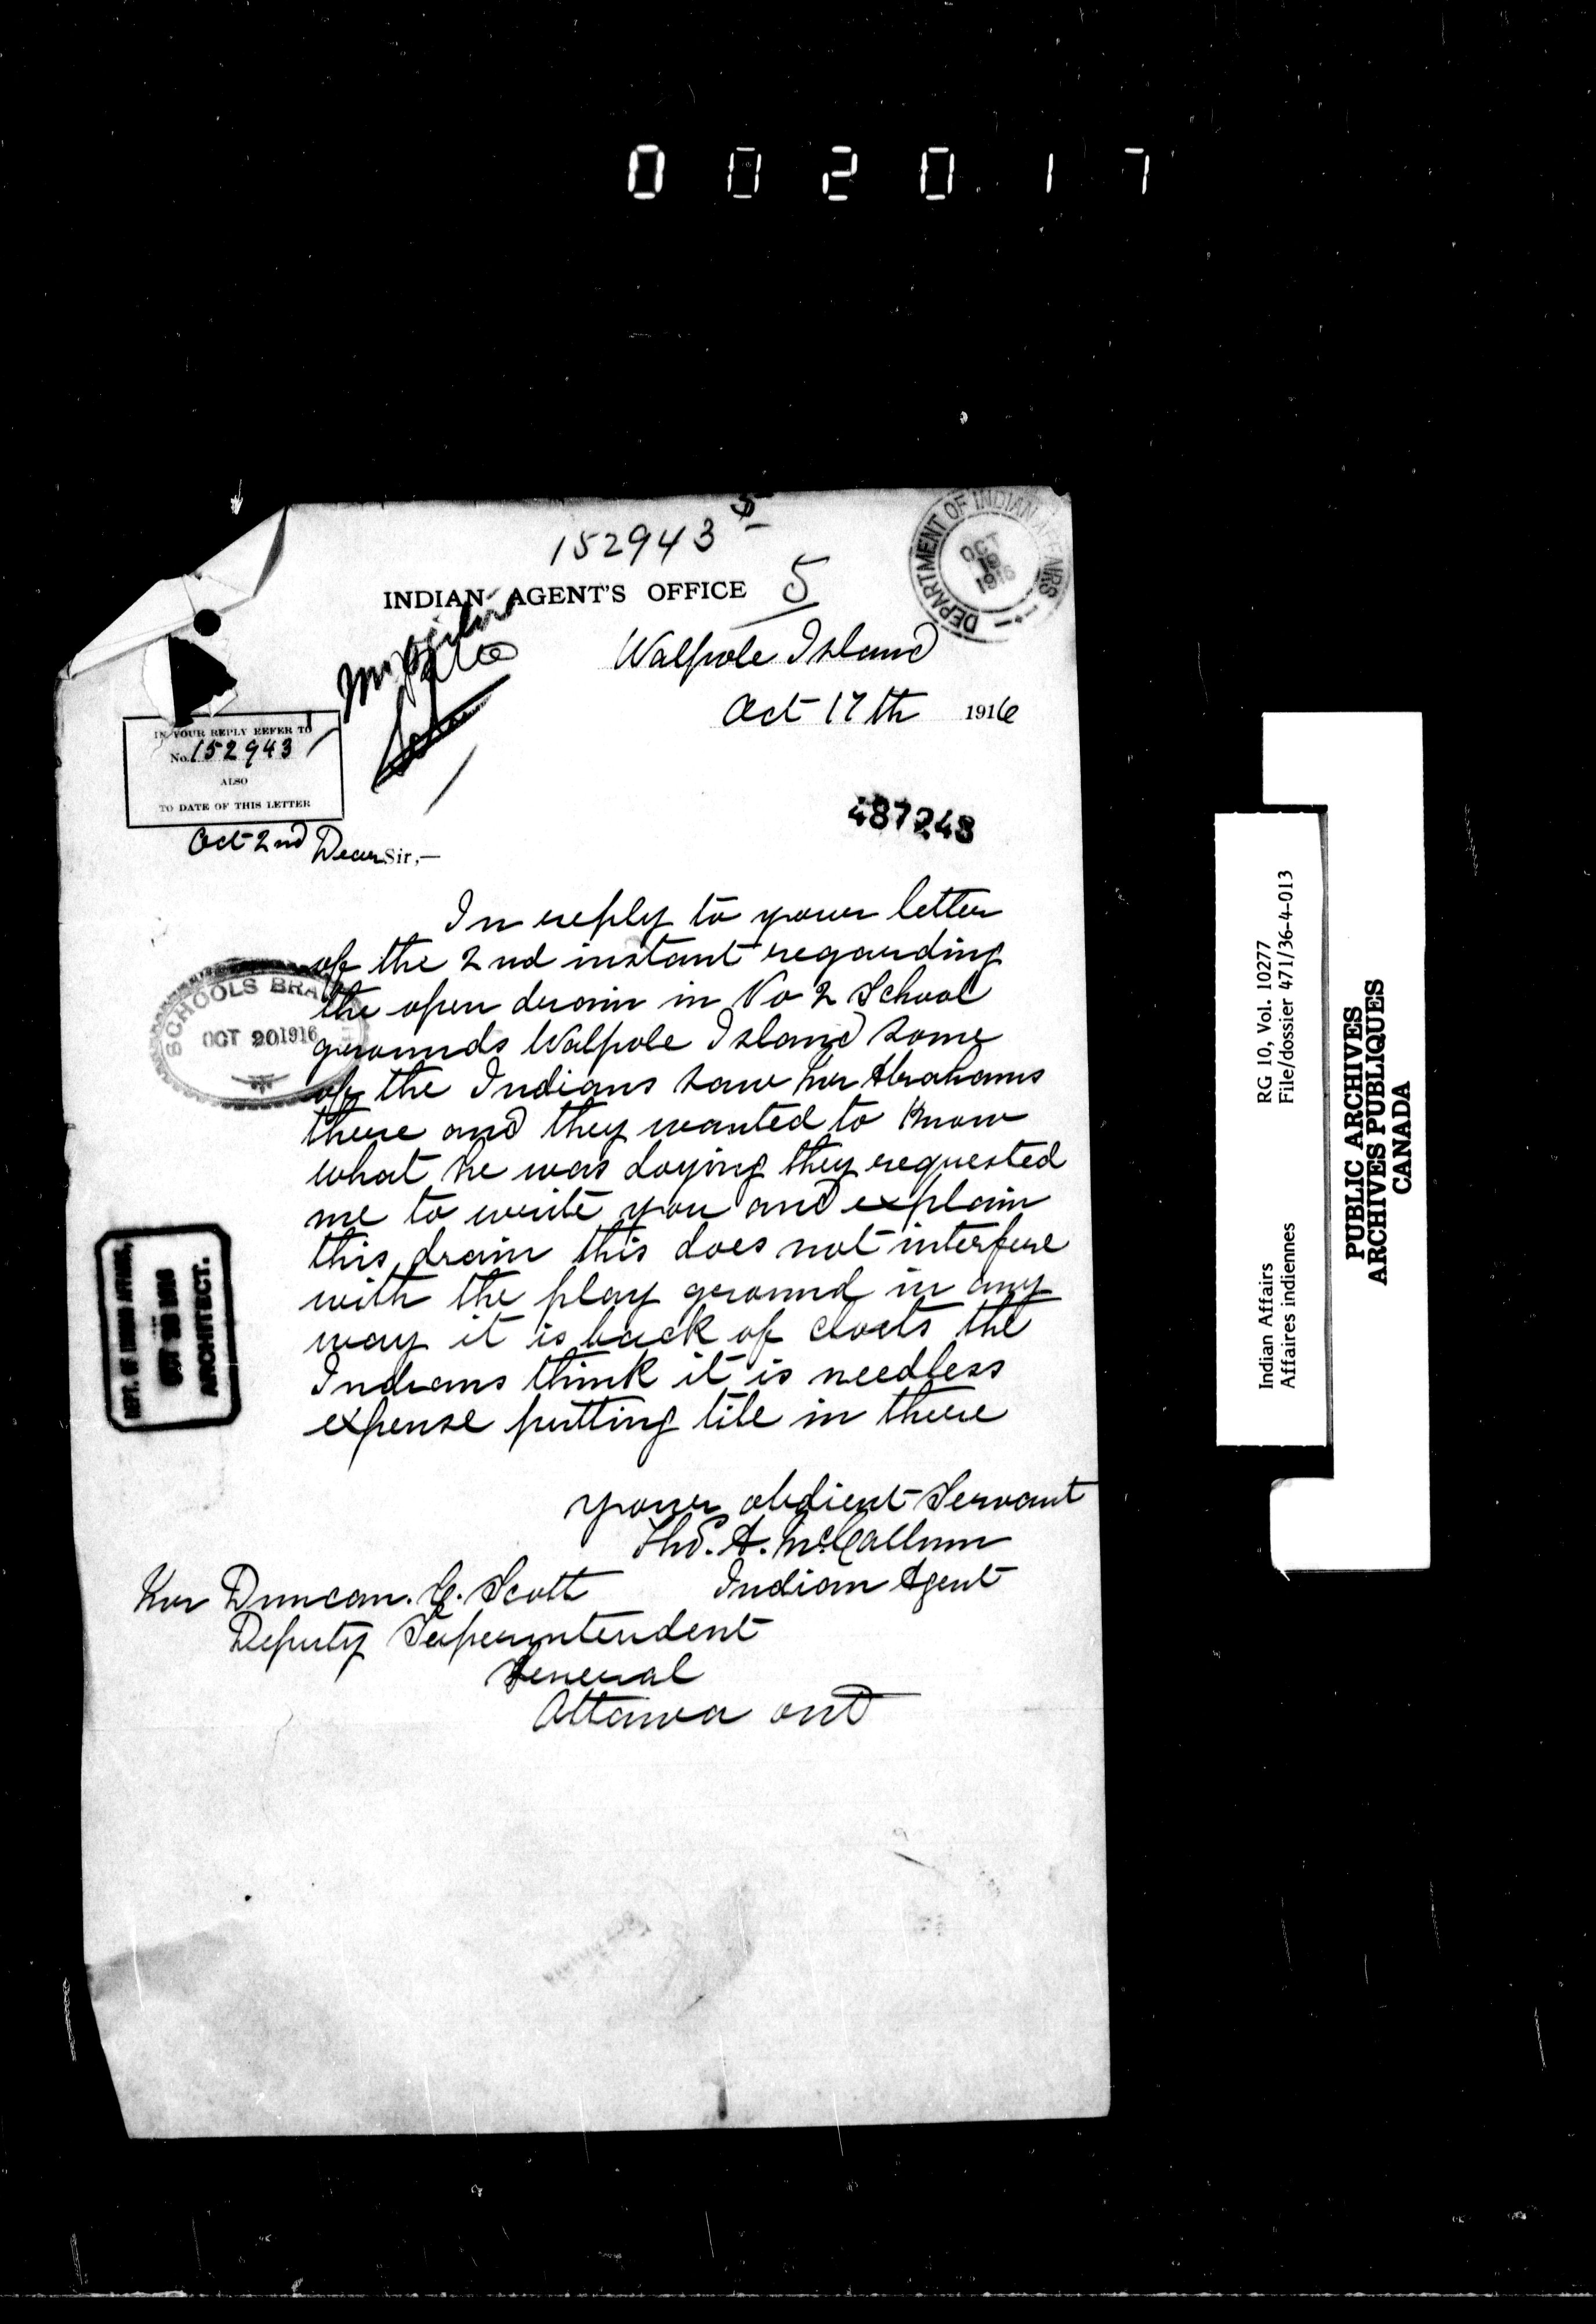 002017
152943
5
INDIAN AGENT'S OFFICE
5
DEPARTMENT OF INDIAN AFFAIRS
OCT
1916
Walpole Island
Oct 17th 1916
IN YOUR REPLY REFER TO
No. 152943
ALSO
TO DATE OF THIS LETTER
Oct 2nd
487248
Dear Sir,—
In reply to your letter
of the 2nd instant regarding
the open drain in No 2 School
grounds Walpole Island some
of the Indians saw Mr Abrahams
there and they wanted to know
what he was doying they requested
me to write you and explain
this drain this does not interfere
with the play ground in any
way it is back of closts the
Indians think it is needless
expense putting tile in there
SCHOOLS BRA
OCT 20 1916
DEPT. OF INDIAN AFFAIRS,
OCT
ARCHITECT.
your obdient Servant
Thos. A. McCallum
Indian Agent
Mr Duncan. C. Scott
Deputy Superintendent
General
Ottawa ont
Indian Affairs RG 10, Vol. 10277
Affaires indiennes File/dossier 471/36-4-013
PUBLIC ARCHIVES
ARCHIVES PUBLIQUES
CANADA